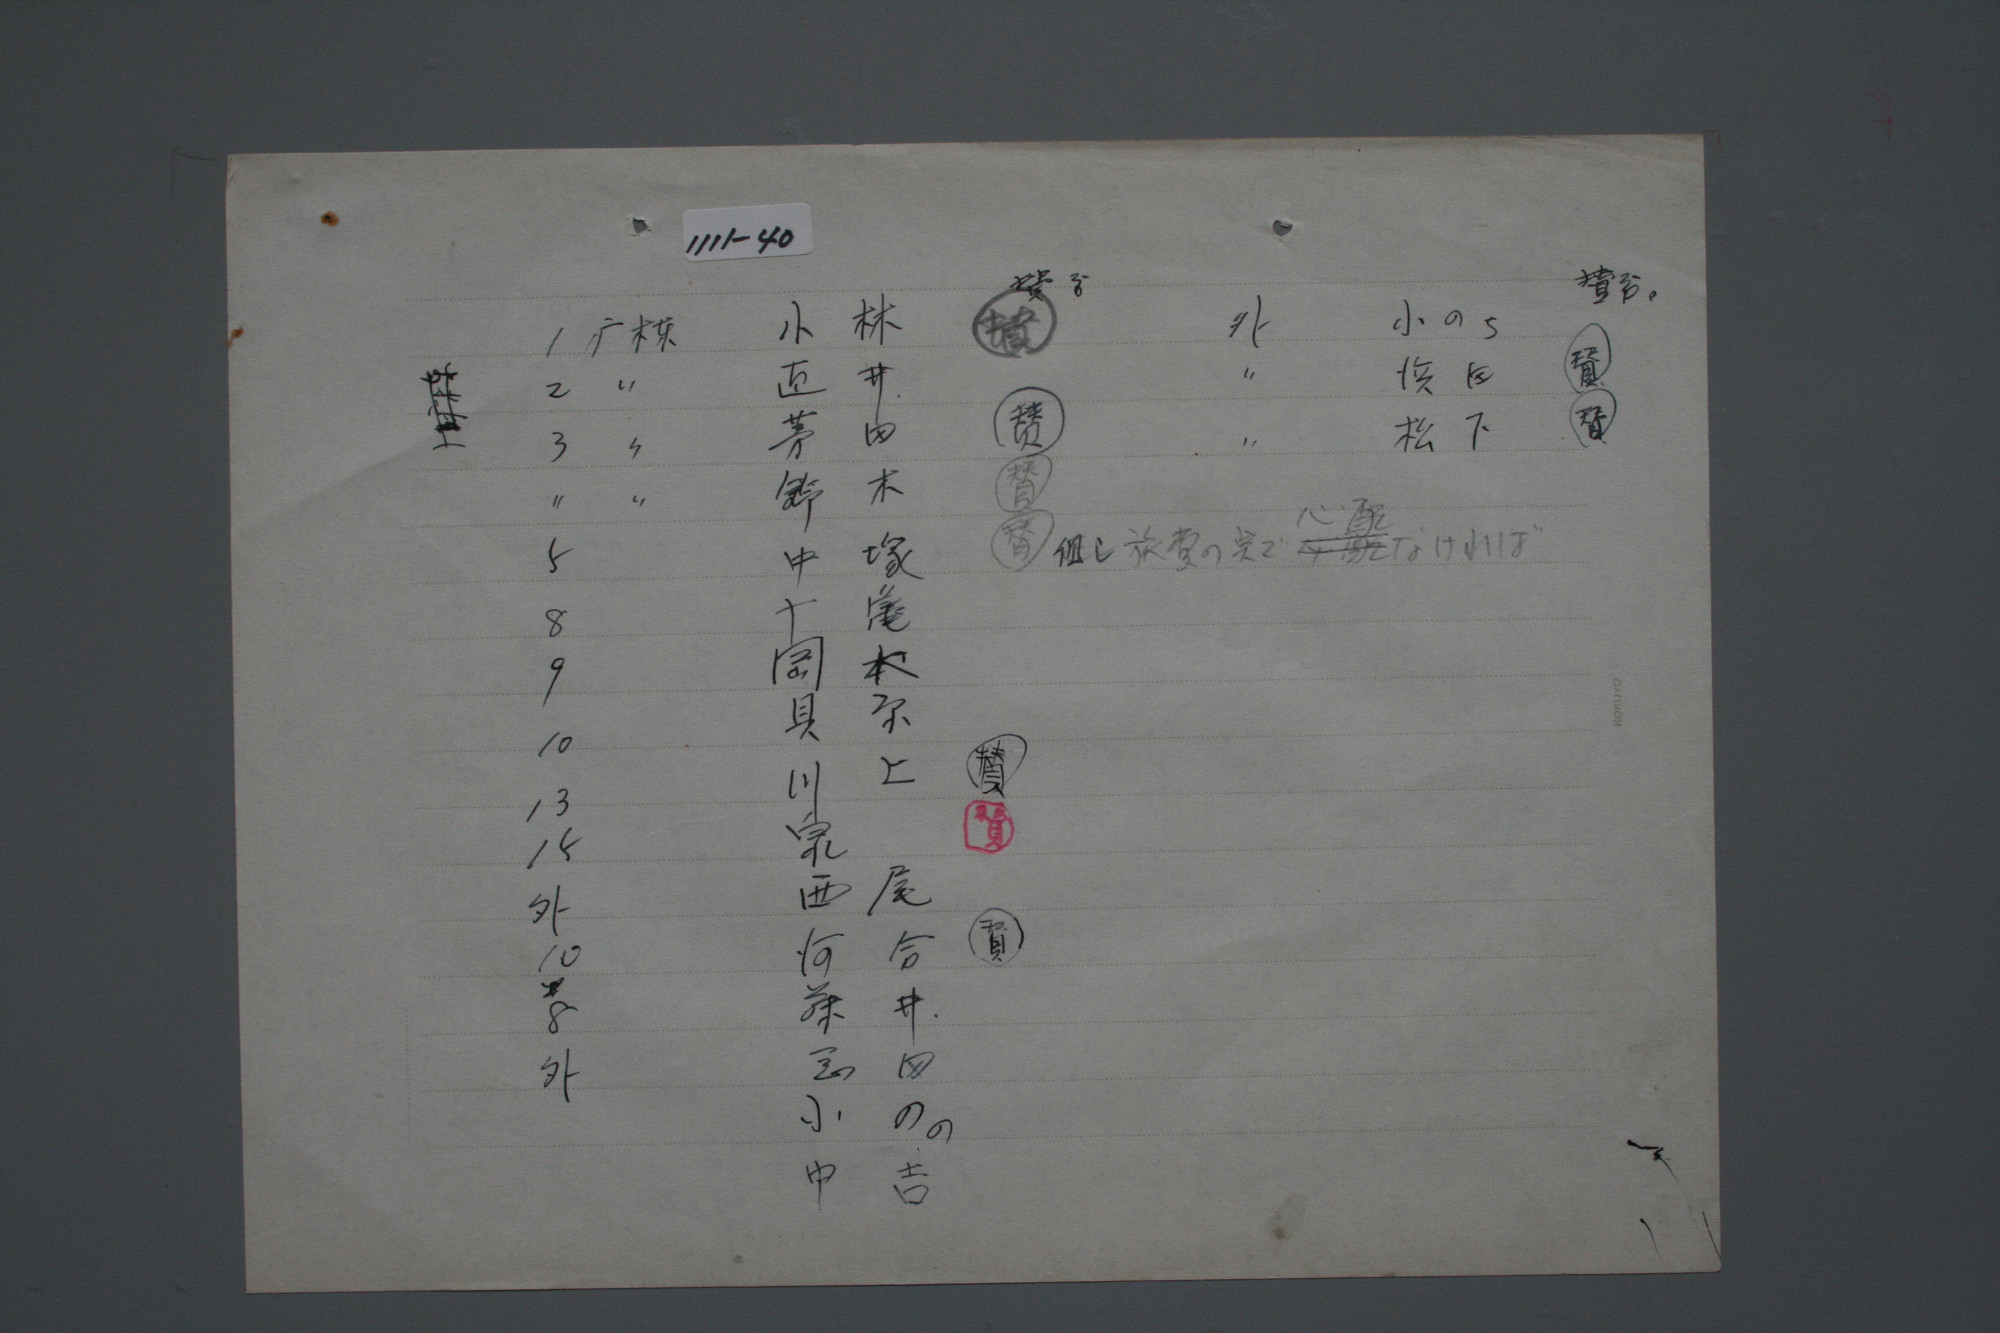 1111-40
賛否
賛否。
1 疒棟 小林 賛
2 〃 近井
3 〃 芳田 賛
〃 〃 鈴木 賛
5 中塚 賛 但し旅費の点で心配なければ
8 十亀
9 岡本
貝原
10 川上 賛
13 泉 賛
15 西尾
外 河合 賛
10 藤井
8
外 小のの
中吉
外 小のち
〃 浜田 賛
〃 松下 賛